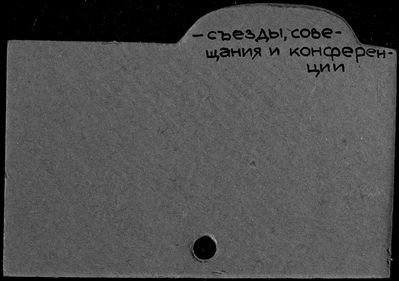 - съезды, сове-
щания и конферен-
ции